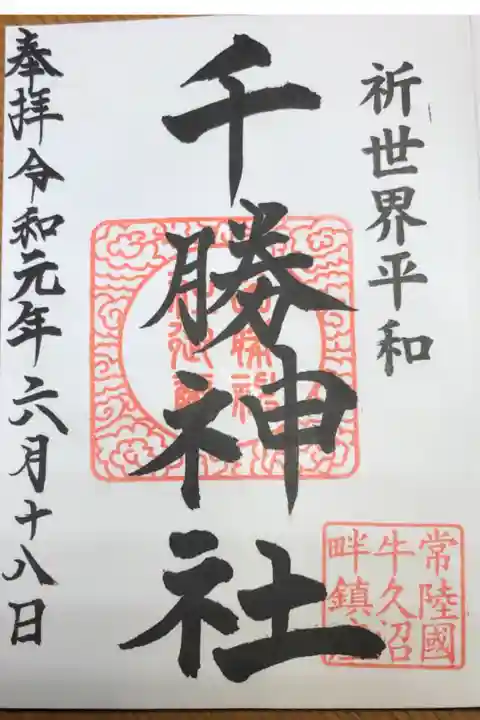 祈世界平和
千勝神社
奉拝令和元年六月十八日
常陸國
牛久沼
畔鎮